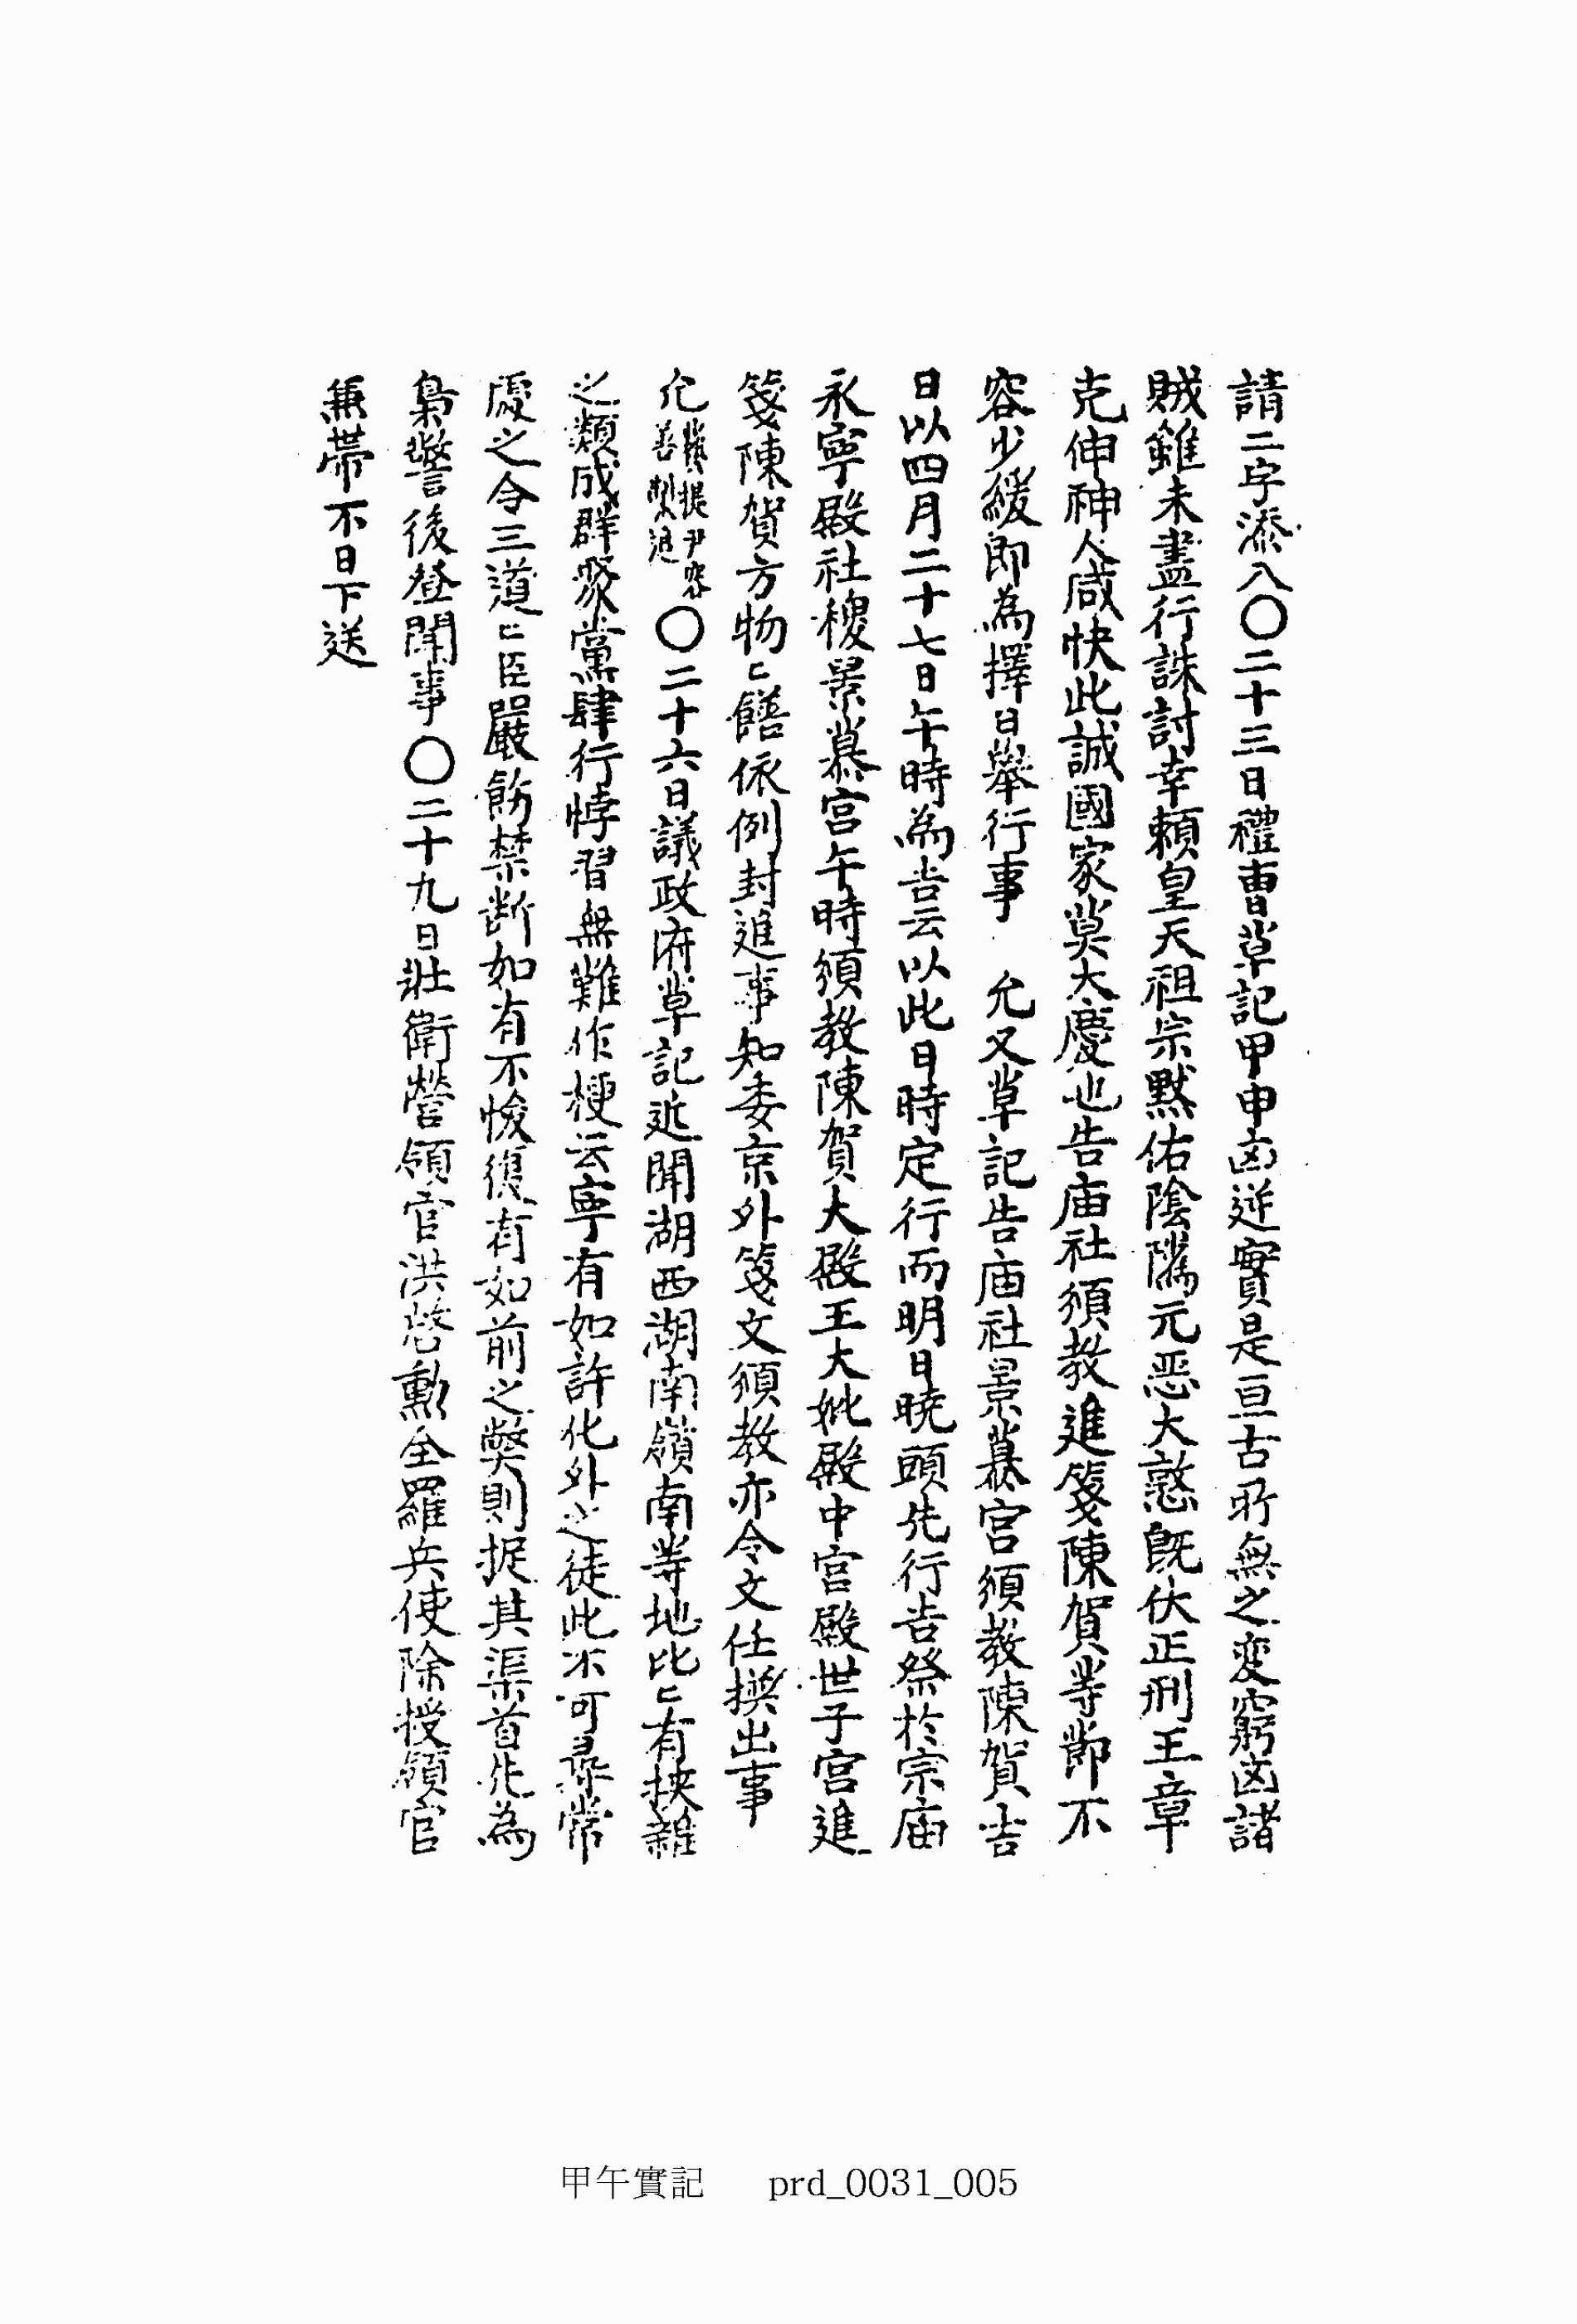 請二字添入〇二十三日禮曹草記甲申凶逆實是亘古所無之変窮凶諸
賊雖未盡行誅討幸頼皇天祖宗黙佑陰隲元惡大憝旣伏正刑王章
克伸神人咸快此誠國家莫大慶也告庙社頒教進箋陳賀等節不
容少緩即為擇日舉行事 允又草記告庙社景慕宮頒教陳賀吉
日以四月二十七日午時為吉云以此日時定行而明日暁頭先行告祭於宗庙
永寧殿社稷景慕宮午時頒教陳賀大殿王大妣殿中宮殿世子宮進
箋陳賀方物〻饍依例封進事知委京外箋文頒教亦令文任撰出事
允 提尹容善製進〇二十六日議政府草記近聞湖西湖南嶺南等地比〻有挾雜
之類成群聚黨肆行悖習無難作梗云寧有如許化外之徒此不可尋常
處之令三道〻臣嚴飭禁断如有不悛復有如前之獘則捉其渠首先為
梟警後登聞事〇二十九日壯衛營領官洪啓勳全羅兵使除授領官
兼帯不日下送
甲午實記 prd_0031_005